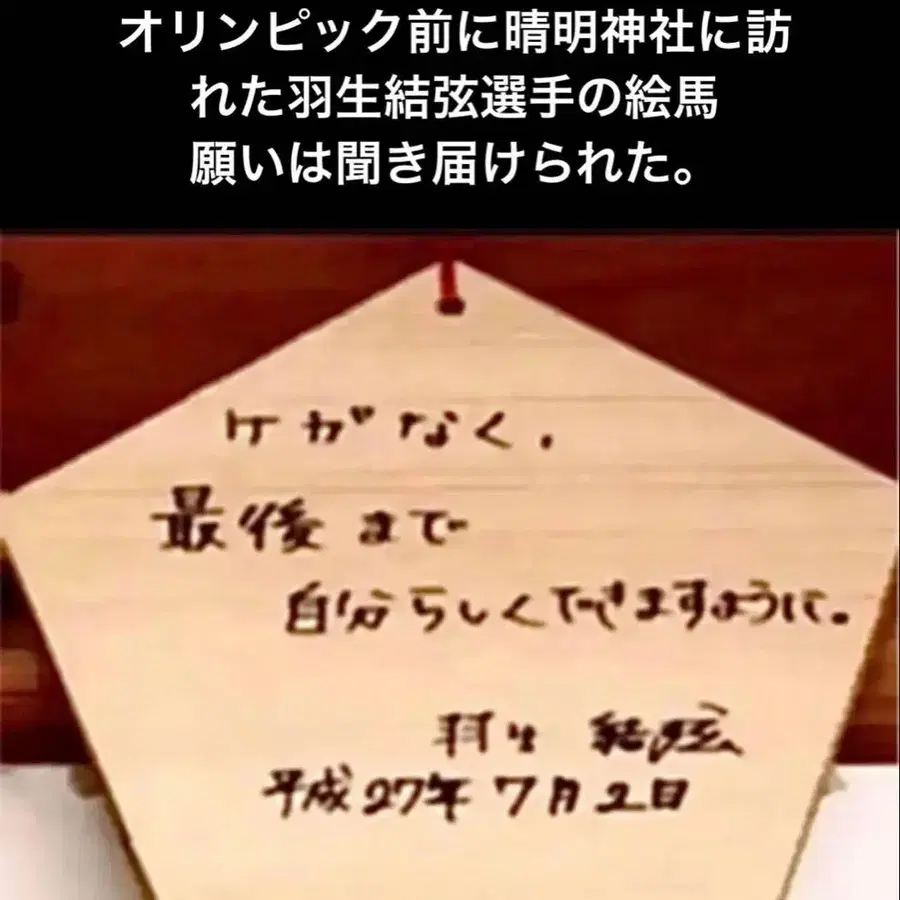 オリンピック前に晴明神社に訪
れた羽生結弦選手の絵馬
願いは聞き届けられた。
ケガなく、
最後まで
自分らしくできますように。
羽生 結弦
平成27年7月2日